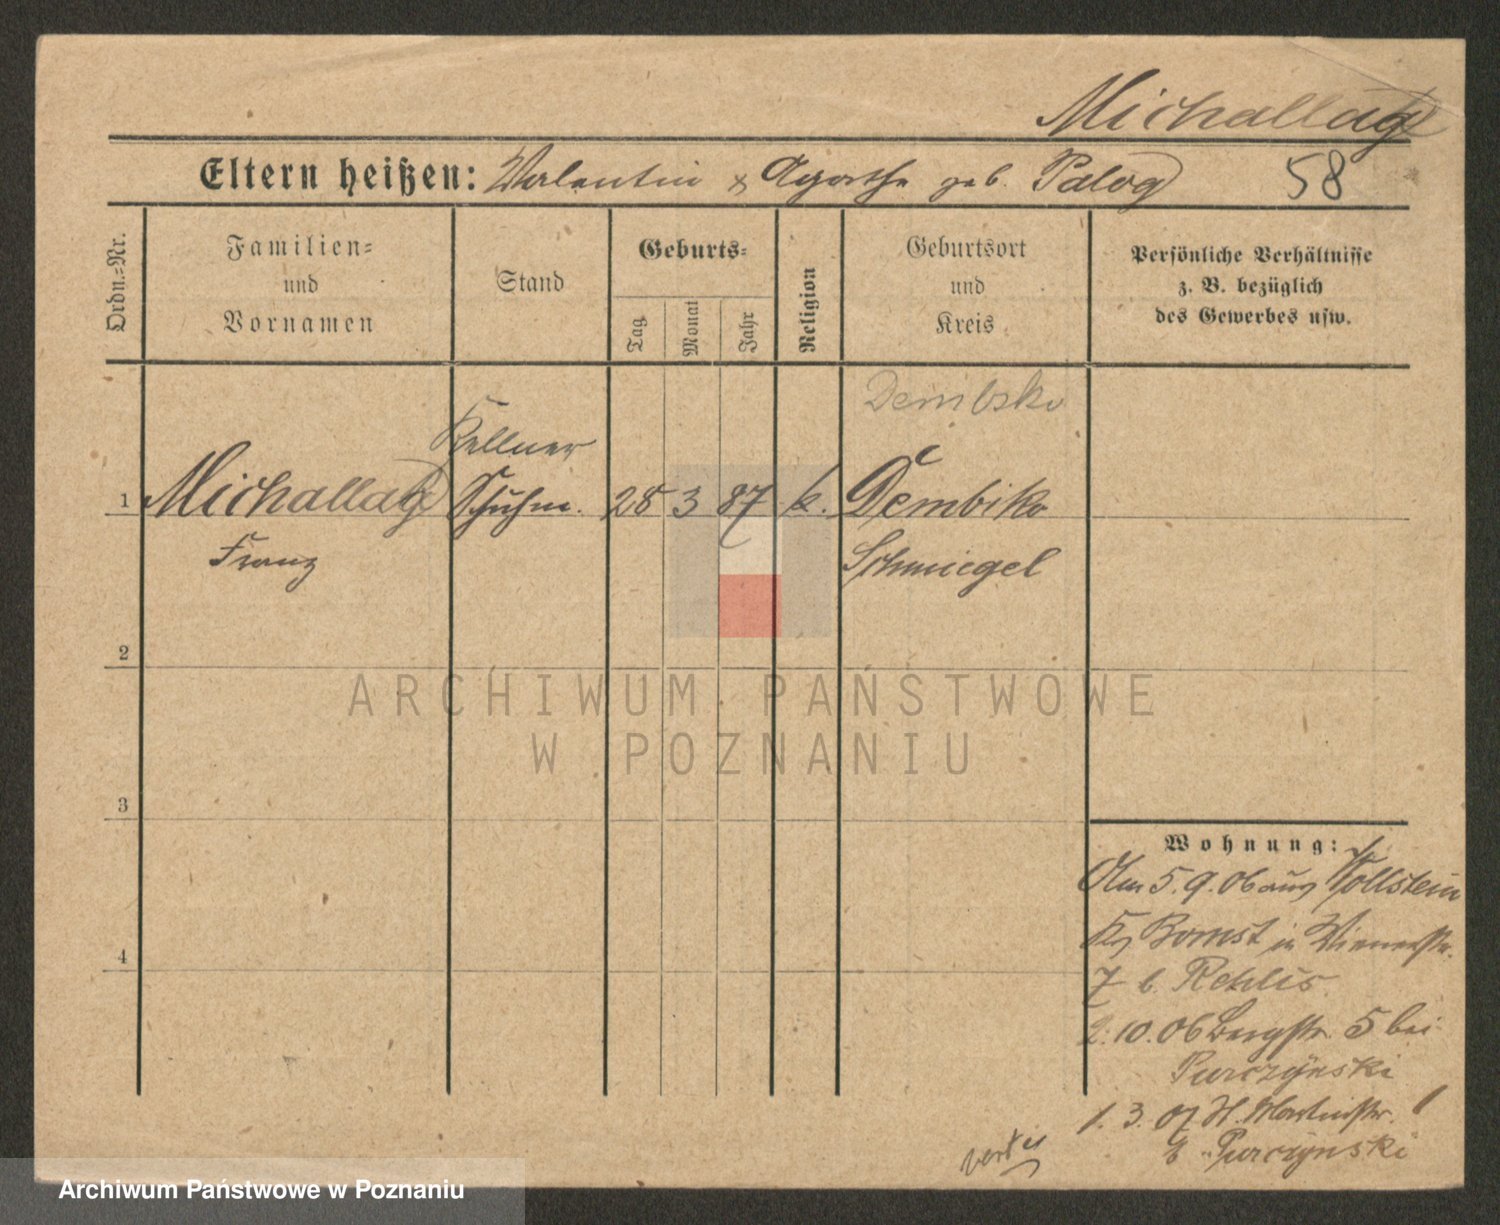 Michallag
Eltern heißen: Valentin & Agathe geb. Palog 58
Ordn.-Nr.
Familien-
und
Vornamen
Stand
Geburts-
Tag
Monat
Jahr
Religion
Geburtsort
und
Kreis
Persönliche Verhältnisse
z. B. bezüglich
des Gewerbes usw.
Dembsko
Kellner
1 Michallag Schuhm. 28 3 87 k. Dembsko
Franz Schmiegel
2
3
4
Wohnung:
Am 5.9.06 aus Wollstein
Kr Bomst in Wienerstr.
7 b. Rehlis
2.10.06 Bergstr. 5 bei
Purczynski
1.3.07 St. Martinstr.
Purczynski
ARCHIWUM PAŃSTWOWE
W POZNANIU
Archiwum Państwowe w Poznaniu